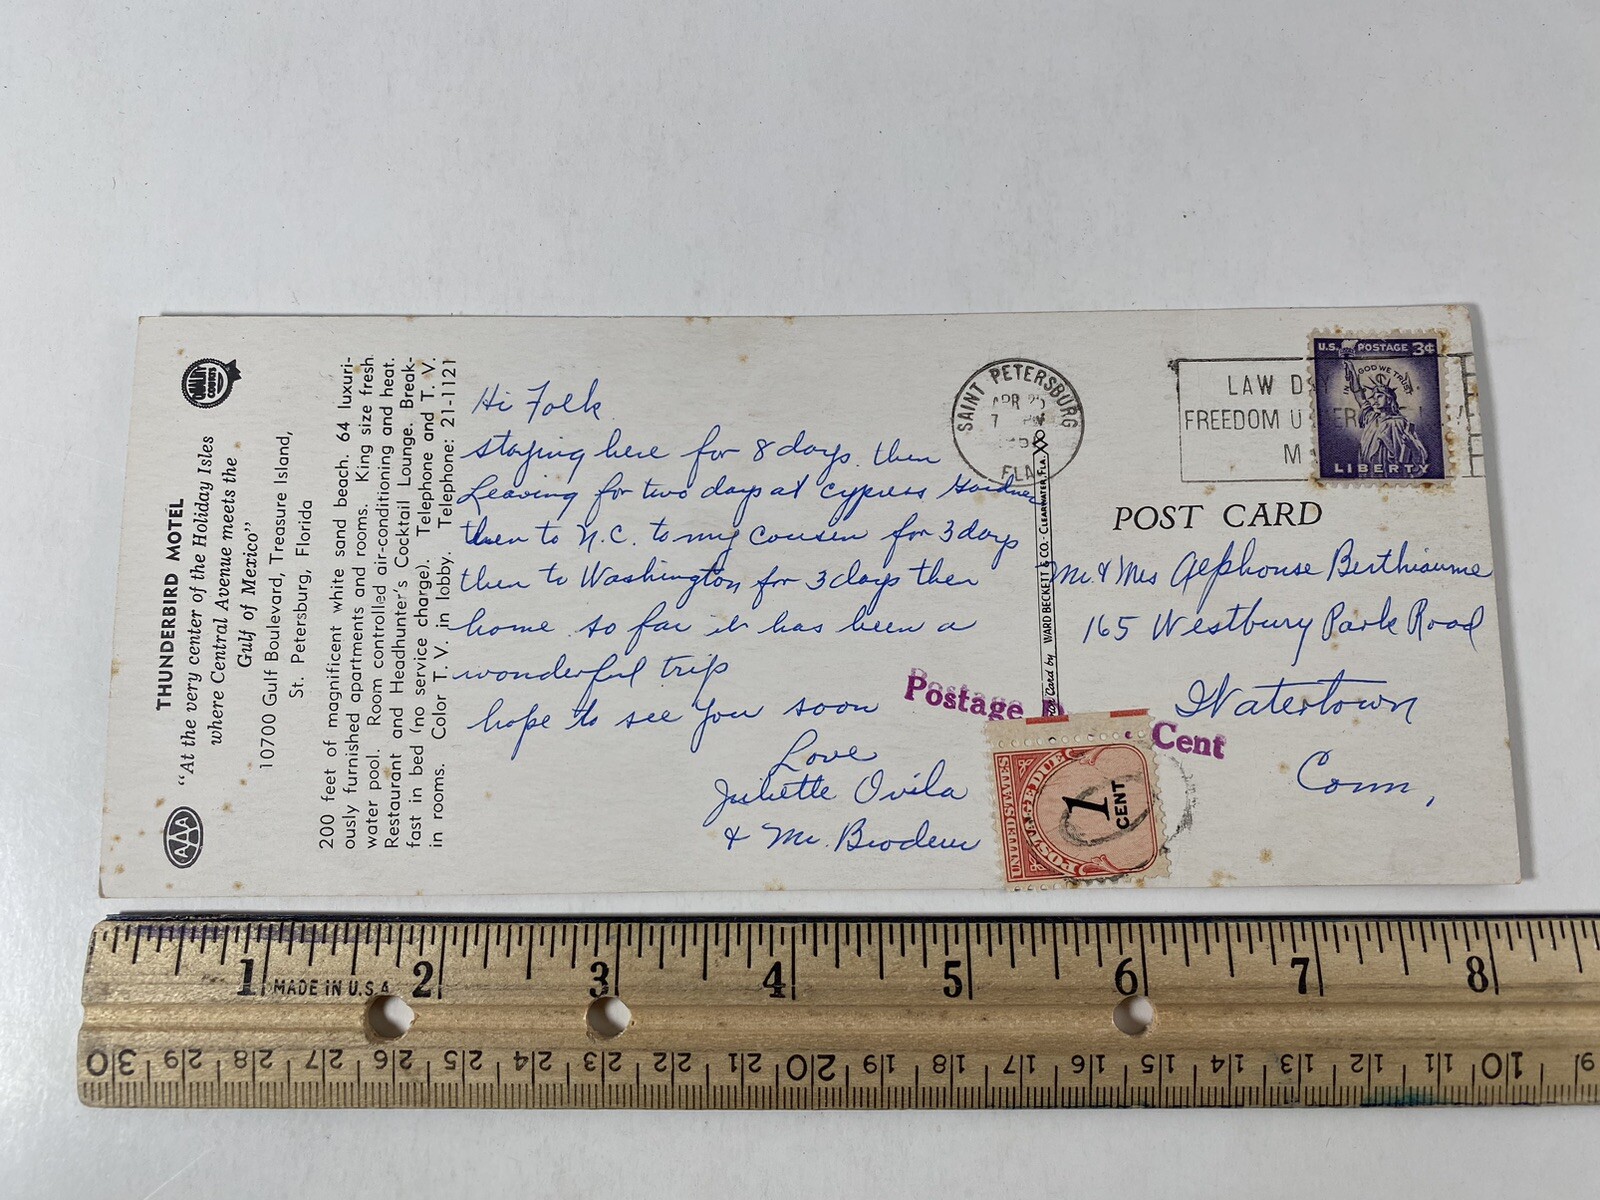 THUNDERBIRD MOTEL
"At the very center of the Holiday Isles
where Central Avenue meets the
Gulf of Mexico"
10700 Gulf Boulevard, Treasure Island,
St. Petersburg, Florida
200 feet of magnificent white sand beach. 64 luxuri-
ously furnished apartments and rooms. King size fresh
water pool. Room controlled air-conditioning and heat.
Restaurant and Headhunter's Cocktail Lounge. Break-
fast in bed (no service charge). Telephone and T. V.
in rooms. Color T. V. in lobby. Telephone: 21-1121
AAA
QUALITY
COURTS
Hi Folk
staying here for 8 days. then
Leaving for two days at cypress Gardner
then to N.C. to my cousin for 3 days
then to Washington for 3 days then
home. so far it has been a
wonderful trip
hope to see you soon
Love
Juliette Ovila
& Mr. Brodeur
SAINT PETERSBURG
APR 25
7 PM
FLA
Card by WARD BECKETT & CO. CLEARWATER, FLA.
LAW
FREEDOM
U.S. POSTAGE 3¢
IN GOD WE TRUST
LIBERTY
POST CARD
Mr. & Mrs Alphonse Berthiaume
165 Westbury Park Road
Watertown
Conn,
Postage
Cent
UNITED STATES
POSTAGE DUE
1
CENT
1 2 3 4 5 6 7 8
MADE IN U.S.A
30 29 28 27 26 25 24 23 22 21 20 19 18 17 16 15 14 13 12 11 10 9